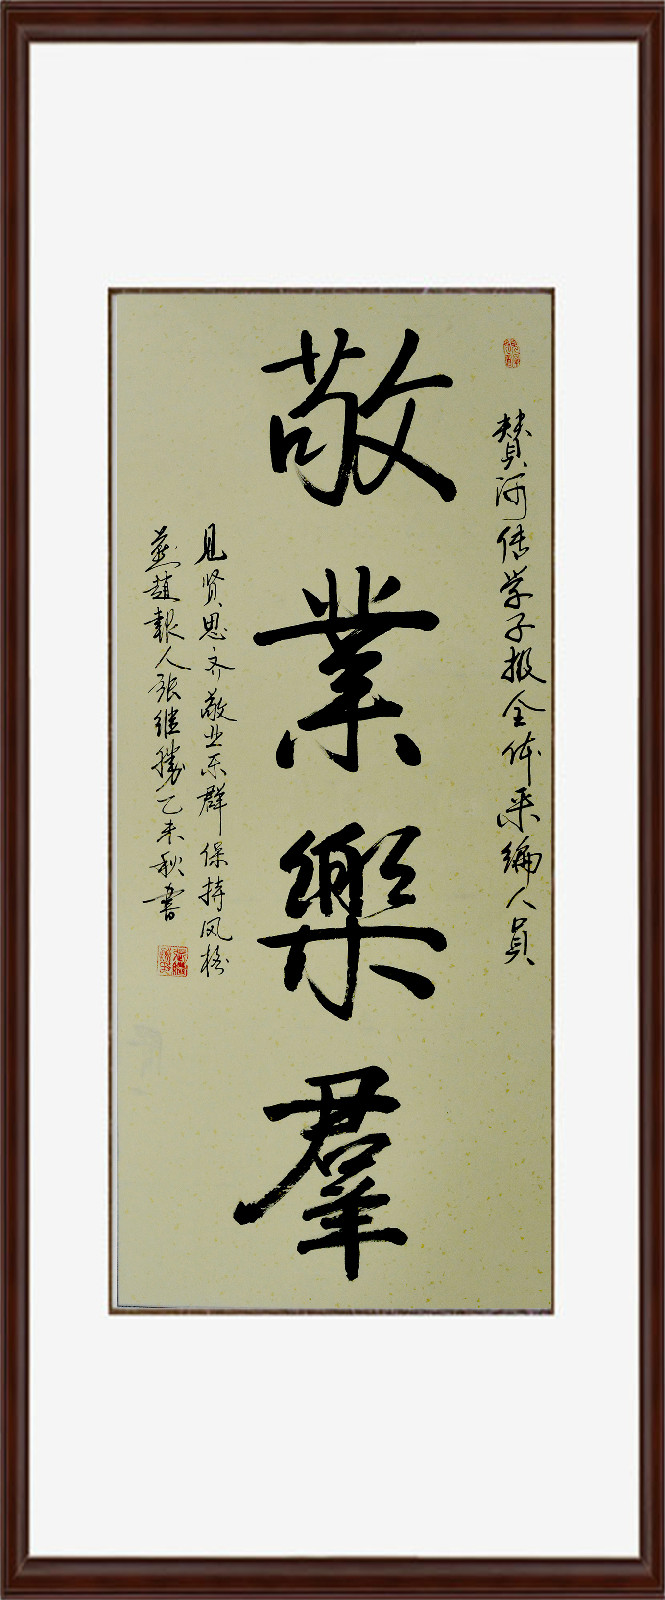 赞河传学子报全体采编人员
敬業樂羣
见贤思齐敬业乐群保持风格
燕趙報人张继勝乙未秋書